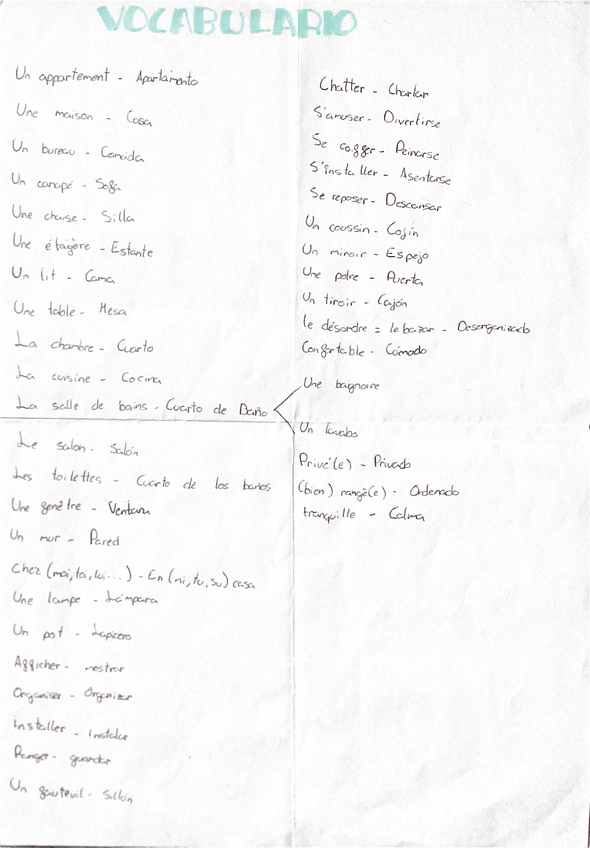 VOCABULARIO
Un appartement - Apartamento
Une maison - Casa
Un bureau - Comoda
Un canapé - Sofa
Une chaise - Silla
Une étagère - Estante
Un lit - Cama
Une table - Mesa
La chambre - Cuarto
La cuisine - Cocina
La salle de bains - Cuarto de Baño
Le salon - Salón
Les toilettes - Cuarto de los baños
Une fenêtre - Ventana
Un mur - Pared
Chez (moi, toi, lui...) - En (mi, tu, su) casa
Une lampe - Lámpara
Un pot - Lapicero
Afficher - mostrar
Organiser - Organizar
installer - instalar
Ranger - guardar
Un fauteuil - Sillón
Chatter - Charlar
S'amuser - Divertirse
Se coffer - Peinarse
S'installer - Asentarse
Se reposer - Descansar
Un coussin - Cojín
Un miroir - Espejo
Une potre - Puerta
Un tiroir - Cajón
le désordre = le bazar - Desorganizado
Confortable - Cómodo
Une bagnoire
Un lavabo
Privé(e) - Privado
(bien) rangé(e) - Ordenado
tranquille - Calma